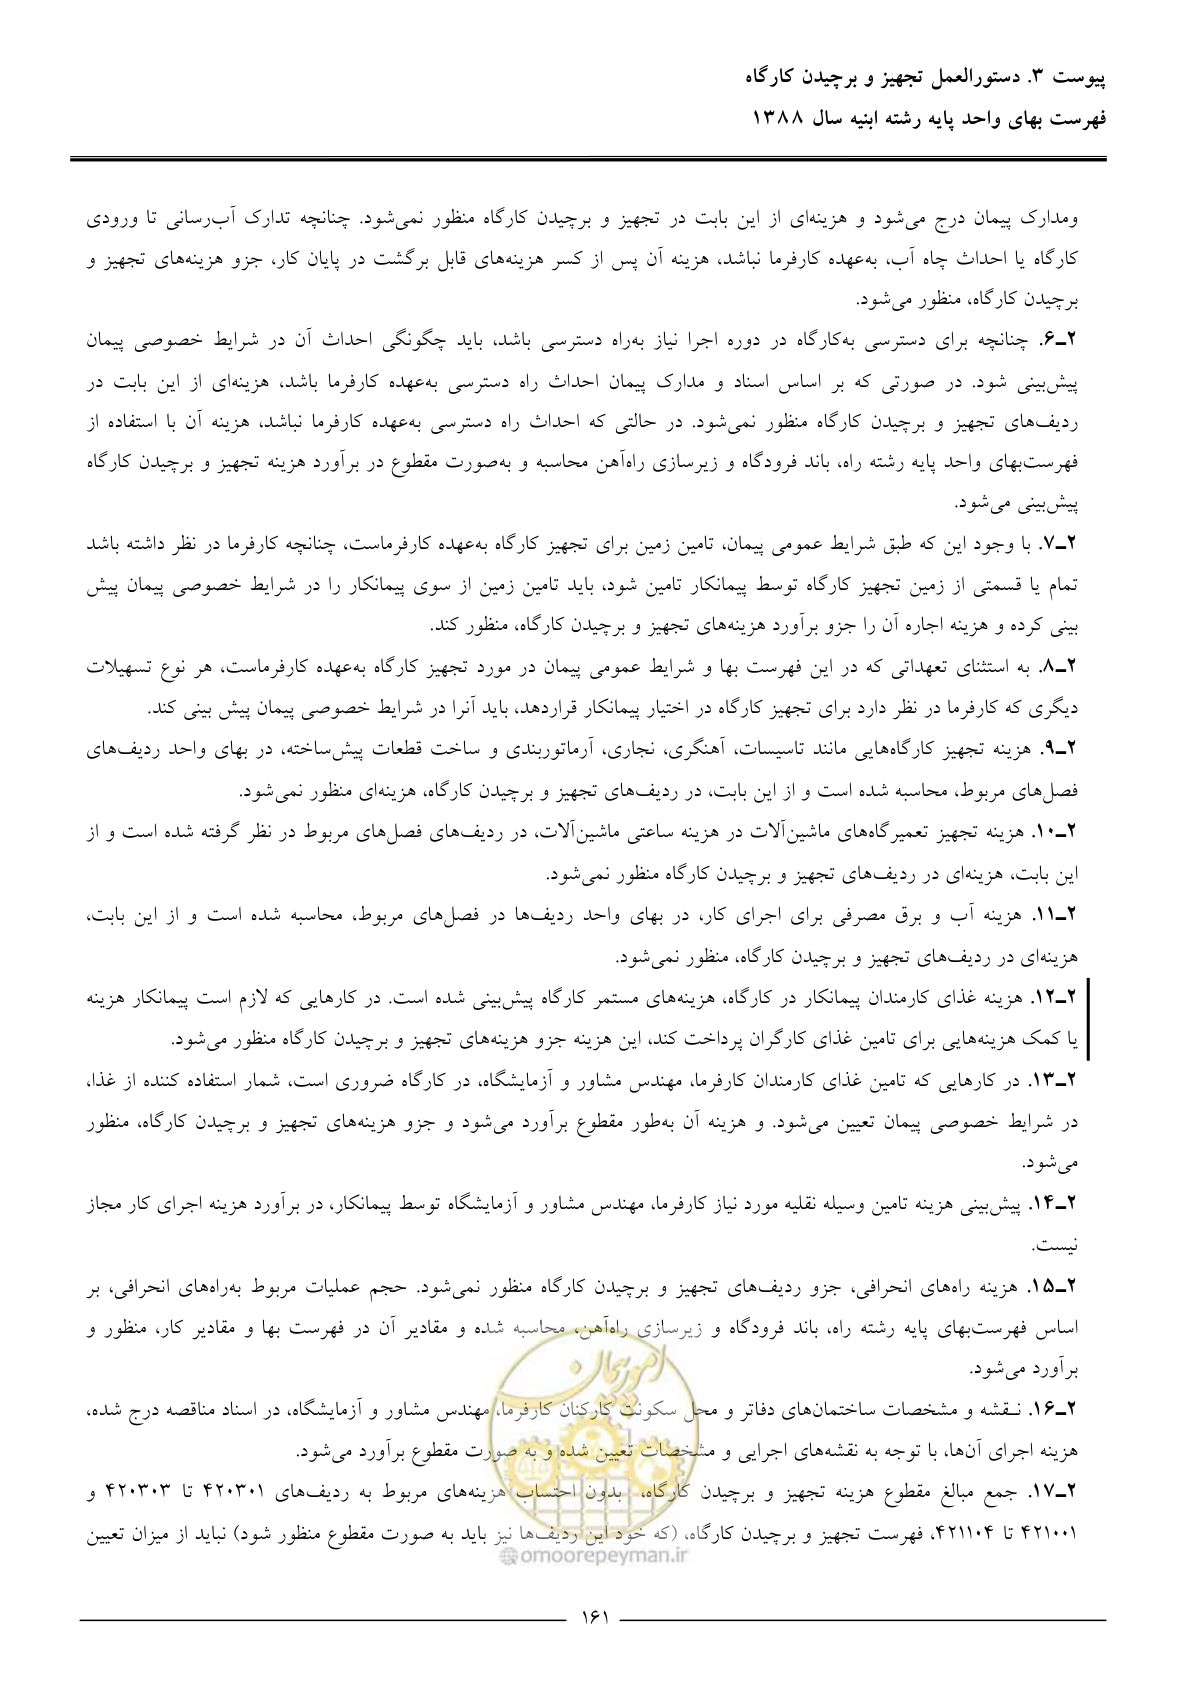 پیوست ۳. دستورالعمل تجهیز و برچیدن کارگاه
فهرست بهای واحد پایه رشته ابنیه سال ۱۳۸۸
ومدارک پیمان درج می‌شود و هزینه‌ای از این بابت در تجهیز و برچیدن کارگاه منظور نمی‌شود. چنانچه تدارک آب‌رسانی تا ورودی
کارگاه یا احداث چاه آب، به‌عهده کارفرما نباشد، هزینه آن پس از کسر هزینه‌های قابل برگشت در پایان کار، جزو هزینه‌های تجهیز و
برچیدن کارگاه، منظور می‌شود.
۲ـ۶. چنانچه برای دسترسی به‌کارگاه در دوره اجرا نیاز به‌راه دسترسی باشد، باید چگونگی احداث آن در شرایط خصوصی پیمان
پیش‌بینی شود. در صورتی که بر اساس اسناد و مدارک پیمان احداث راه دسترسی به‌عهده کارفرما باشد، هزینه‌ای از این بابت در
ردیف‌های تجهیز و برچیدن کارگاه منظور نمی‌شود. در حالتی که احداث راه دسترسی به‌عهده کارفرما نباشد، هزینه آن با استفاده از
فهرست‌بهای واحد پایه رشته راه، باند فرودگاه و زیرسازی راه‌آهن محاسبه و به‌صورت مقطوع در برآورد هزینه تجهیز و برچیدن کارگاه
پیش‌بینی می‌شود.
۲ـ۷. با وجود این که طبق شرایط عمومی پیمان، تامین زمین برای تجهیز کارگاه به‌عهده کارفرماست، چنانچه کارفرما در نظر داشته باشد
تمام یا قسمتی از زمین تجهیز کارگاه توسط پیمانکار تامین شود، باید تامین زمین از سوی پیمانکار را در شرایط خصوصی پیمان پیش
بینی کرده و هزینه اجاره آن را جزو برآورد هزینه‌های تجهیز و برچیدن کارگاه، منظور کند.
۲ـ۸. به استثنای تعهداتی که در این فهرست بها و شرایط عمومی پیمان در مورد تجهیز کارگاه به‌عهده کارفرماست، هر نوع تسهیلات
دیگری که کارفرما در نظر دارد برای تجهیز کارگاه در اختیار پیمانکار قراردهد، باید آنرا در شرایط خصوصی پیمان پیش بینی کند.
۲ـ۹. هزینه تجهیز کارگاه‌هایی مانند تاسیسات، آهنگری، نجاری، آرماتوربندی و ساخت قطعات پیش‌ساخته، در بهای واحد ردیف‌های
فصل‌های مربوط، محاسبه شده است و از این بابت، در ردیف‌های تجهیز و برچیدن کارگاه، هزینه‌ای منظور نمی‌شود.
۲ـ۱۰. هزینه تجهیز تعمیرگاه‌های ماشین‌آلات در هزینه ساعتی ماشین‌آلات، در ردیف‌های فصل‌های مربوط در نظر گرفته شده است و از
این بابت، هزینه‌ای در ردیف‌های تجهیز و برچیدن کارگاه منظور نمی‌شود.
۲ـ۱۱. هزینه آب و برق مصرفی برای اجرای کار، در بهای واحد ردیف‌ها در فصل‌های مربوط، محاسبه شده است و از این بابت،
هزینه‌ای در ردیف‌های تجهیز و برچیدن کارگاه، منظور نمی‌شود.
۲ـ۱۲. هزینه غذای کارمندان پیمانکار در کارگاه، هزینه‌های مستمر کارگاه پیش‌بینی شده است. در کارهایی که لازم است پیمانکار هزینه
یا کمک هزینه‌هایی برای تامین غذای کارگران پرداخت کند، این هزینه جزو هزینه‌های تجهیز و برچیدن کارگاه منظور می‌شود.
۲ـ۱۳. در کارهایی که تامین غذای کارمندان کارفرما، مهندس مشاور و آزمایشگاه، در کارگاه ضروری است، شمار استفاده کننده از غذا،
در شرایط خصوصی پیمان تعیین می‌شود. و هزینه آن به‌طور مقطوع برآورد می‌شود و جزو هزینه‌های تجهیز و برچیدن کارگاه، منظور
می‌شود.
۲ـ۱۴. پیش‌بینی هزینه تامین وسیله نقلیه مورد نیاز کارفرما، مهندس مشاور و آزمایشگاه توسط پیمانکار، در برآورد هزینه اجرای کار مجاز
نیست.
۲ـ۱۵. هزینه راه‌های انحرافی، جزو ردیف‌های تجهیز و برچیدن کارگاه منظور نمی‌شود. حجم عملیات مربوط به‌راه‌های انحرافی، بر
اساس فهرست‌بهای پایه رشته راه، باند فرودگاه و زیرسازی راه‌آهن، محاسبه شده و مقادیر آن در فهرست بها و مقادیر کار، منظور و
برآورد می‌شود.
۲ـ۱۶. نـقشه و مشخصات ساختمان‌های دفاتر و محل سکونت کارکنان کارفرما، مهندس مشاور و آزمایشگاه، در اسناد مناقصه درج شده،
هزینه اجرای آن‌ها، با توجه به نقشه‌های اجرایی و مشخصات تعیین شده و به صورت مقطوع برآورد می‌شود.
۲ـ۱۷. جمع مبالغ مقطوع هزینه تجهیز و برچیدن کارگاه، بدون احتساب هزینه‌های مربوط به ردیف‌های ۴۲۰۳۰۱ تا ۴۲۰۳۰۳ و
۴۲۱۰۰۱ تا ۴۲۱۱۰۴، فهرست تجهیز و برچیدن کارگاه، (که خود این ردیف‌ها نیز باید به صورت مقطوع منظور شود) نباید از میزان تعیین
امور پیمان
@omoorepeyman.ir
۱۶۱